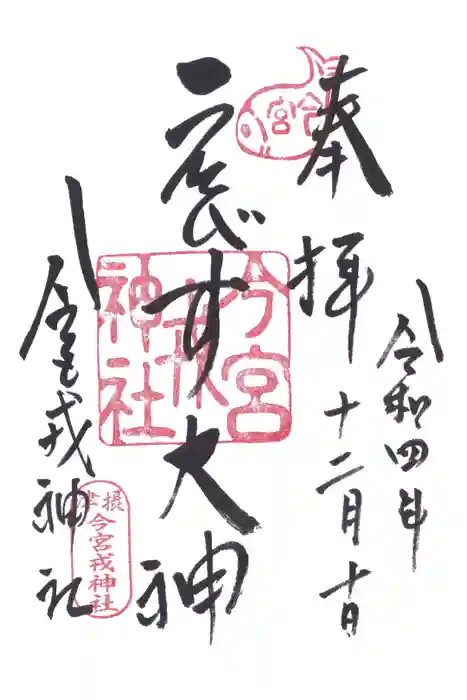 令和四年
奉拝
十二月十日
今宮
ゑびす大神
今宮
戎
神社
今宮戎神社
摂津
今宮戎神社